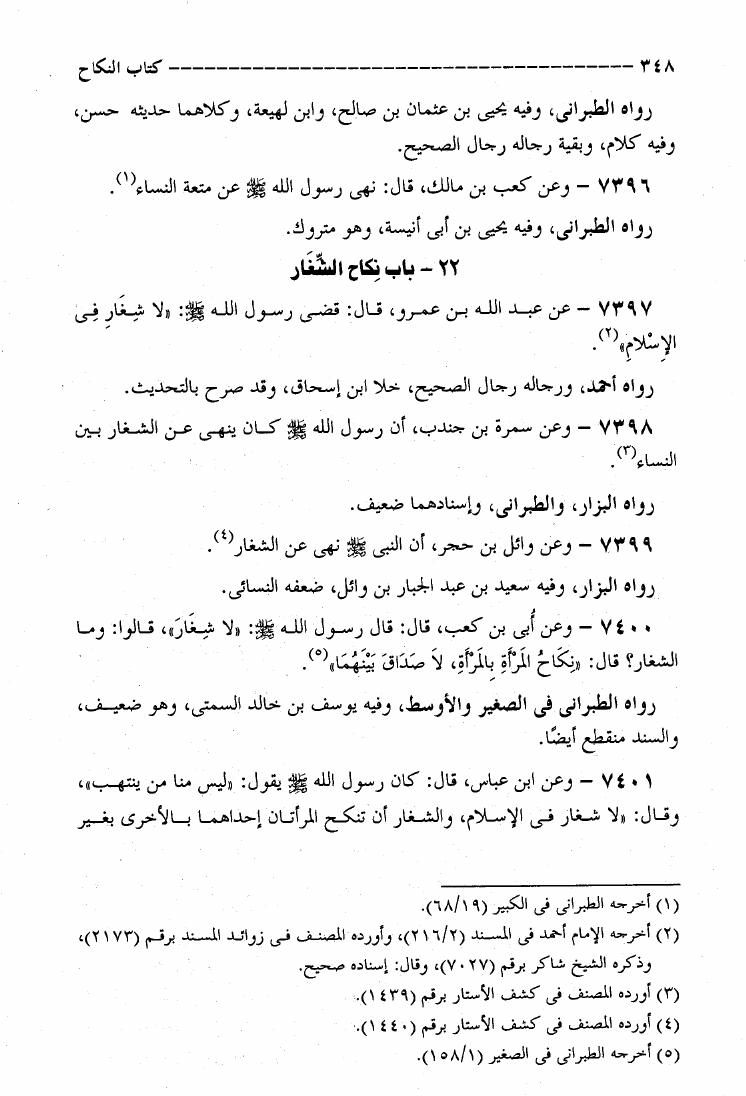 ٣٤٨ ------------------------------------- كتاب النكاح
رواه الطبرانى، وفيه يحيى بن عثمان بن صالح، وابن لهيعة، وكلاهما حديثه حسن،
وفيه كلام، وبقية رجاله رجال الصحيح.
٧٣٩٦ – وعن كعب بن مالك، قال: نهى رسول الله ﷺ عن متعة النساء(١).
رواه الطبرانى، وفيه يحيى بن أبى أنيسة، وهو متروك.
٢٢ – باب نِكاح الشِّغَار
٧٣٩٧ – عن عبد الله بن عمرو، قال: قضى رسول الله ﷺ: «لا شِغَارِ فِى
الإِسْلامِ»(٢).
رواه أحمد، ورجاله رجال الصحيح، خلا ابن إسحاق، وقد صرح بالتحديث.
٧٣٩٨ – وعن سمرة بن جندب، أن رسول الله ﷺ كان ينهى عن الشغار بين
النساء(٣).
رواه البزار، والطبرانى، وإسنادهما ضعيف.
٧٣٩٩ – وعن وائل بن حجر، أن النبى ﷺ نهى عن الشغار(٤).
رواه البزار، وفيه سعيد بن عبد الجبار بن وائل، ضعفه النسائى.
٧٤٠٠ – وعن أُبى بن كعب، قال: قال رسول الله ﷺ: «لا شِغَارَ»، قالوا: وما
الشغار؟ قال: «نِكَاحُ المَرْأَةِ بِالمَرْأَةِ، لاَ صَدَاقَ بَيْنَهُمَا»(٥).
رواه الطبرانى فى الصغير والأوسط، وفيه يوسف بن خالد السمتى، وهو ضعيف،
والسند منقطع أيضًا.
٧٤٠١ – وعن ابن عباس، قال: كان رسول الله ﷺ يقول: «ليس منا من ينتهب»،
وقال: «لا شغار فى الإسلام، والشغار أن تنكح المرأتان إحداهما بالأخرى بغير
(١) أخرجه الطبرانى فى الكبير (٦٨/١٩).
(٢) أخرجه الإمام أحمد فى المسند (٢١٦/٢)، وأورده المصنف فى زوائد المسند برقم (٢١٧٣)،
وذكره الشيخ شاكر برقم (٧٠٢٧)، وقال: إسناده صحيح.
(٣) أورده المصنف فى كشف الأستار برقم (١٤٣٩).
(٤) أورده المصنف فى كشف الأستار برقم (١٤٤٠).
(٥) أخرجه الطبرانى فى الصغير (١٥٨/١).